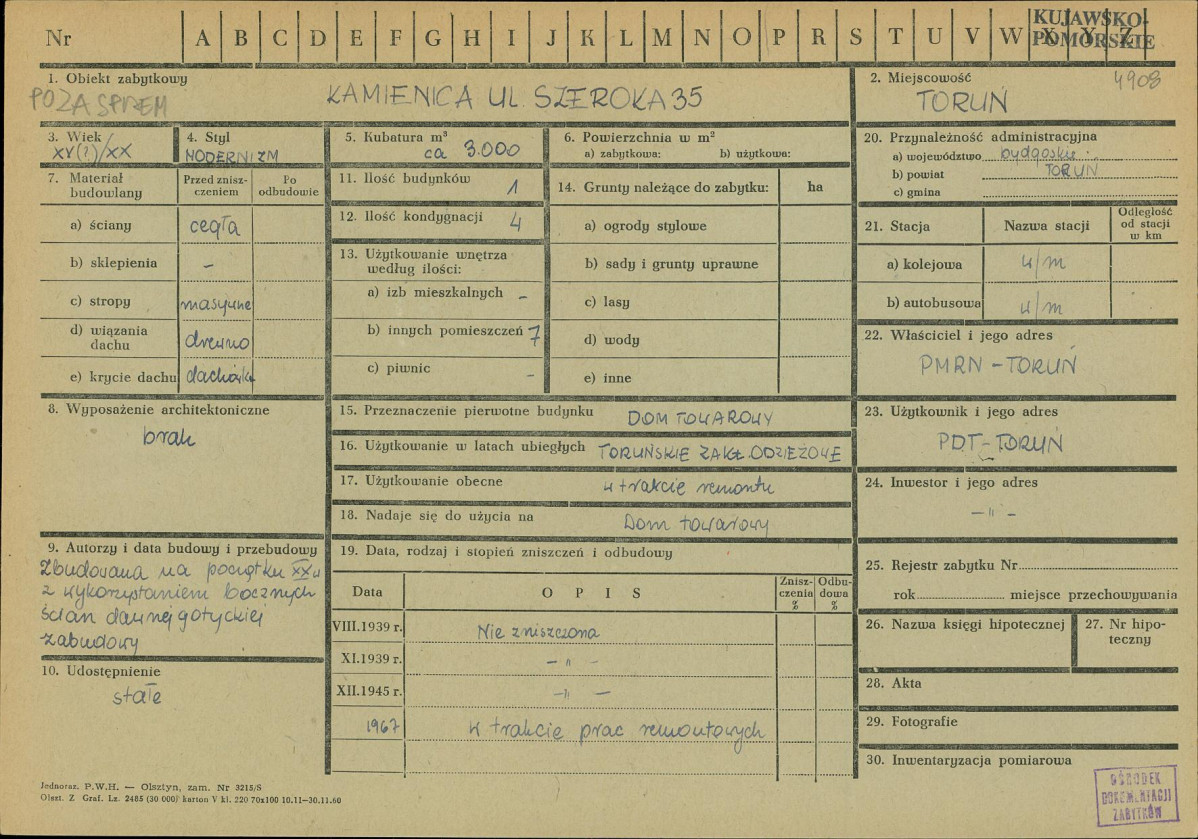 Nr A B C D E F G H I J K L M N O P R S T U V W X Y Z
KUJAWSKO-
POMORSKIE
1. Obiekt zabytkowy
POZA SPREM
KAMIENICA UL. SZEROKA 35
2. Miejscowość
4908
TORUŃ
3. Wiek
XV(?)/XX
4. Styl
MODERNIZM
5. Kubatura m³
ca 3.000
6. Powierzchnia w m²
a) zabytkowa: b) użytkowa:
7. Materiał
budowlany
Przed znisz-
czeniem
Po
odbudowie
a) ściany cegła
b) sklepienia –
c) stropy masywne
d) wiązania
dachu drewno
e) krycie dachu dachówka
8. Wyposażenie architektoniczne
brak
9. Autorzy i data budowy i przebudowy
Zbudowana na początku XX w
z wykorzystaniem bocznych
ścian dawnej gotyckiej
zabudowy
10. Udostępnienie
stałe
11. Ilość budynków 1
12. Ilość kondygnacji 4
13. Użytkowanie wnętrza
według ilości:
a) izb mieszkalnych –
b) innych pomieszczeń 7
c) piwnic –
14. Grunty należące do zabytku: ha
a) ogrody stylowe
b) sady i grunty uprawne
c) lasy
d) wody
e) inne
15. Przeznaczenie pierwotne budynku DOM TOWAROWY
16. Użytkowanie w latach ubiegłych TORUŃSKIE ZAKŁ. ODZIEŻOWE
17. Użytkowanie obecne w trakcie remontu
18. Nadaje się do użycia na Dom towarowy
19. Data, rodzaj i stopień zniszczeń i odbudowy
Data O P I S Znisz-
czenia
% Odbu-
dowa
%
VIII.1939 r. Nie zniszczona
XI.1939 r. – " –
XII.1945 r. – " –
1967 w trakcie prac remontowych
20. Przynależność administracyjna
a) województwo bydgoskie
b) powiat TORUŃ
c) gmina
21. Stacja Nazwa stacji Odległość
od stacji
w km
a) kolejowa w/m
b) autobusowa w/m
22. Właściciel i jego adres
PMRN – TORUŃ
23. Użytkownik i jego adres
PDT – TORUŃ
24. Inwestor i jego adres
– " –
25. Rejestr zabytku Nr
rok miejsce przechowywania
26. Nazwa księgi hipotecznej
27. Nr hipo-
teczny
28. Akta
29. Fotografie
30. Inwentaryzacja pomiarowa
OŚRODEK
DOKUMENTACJI
ZABYTKÓW
Jednoraz. P.W.H. — Olsztyn, zam. Nr 3215/S
Olszt. Z Graf. Lz. 2485 (30.000) karton V kl. 220 70x100 10.11—30.11.60